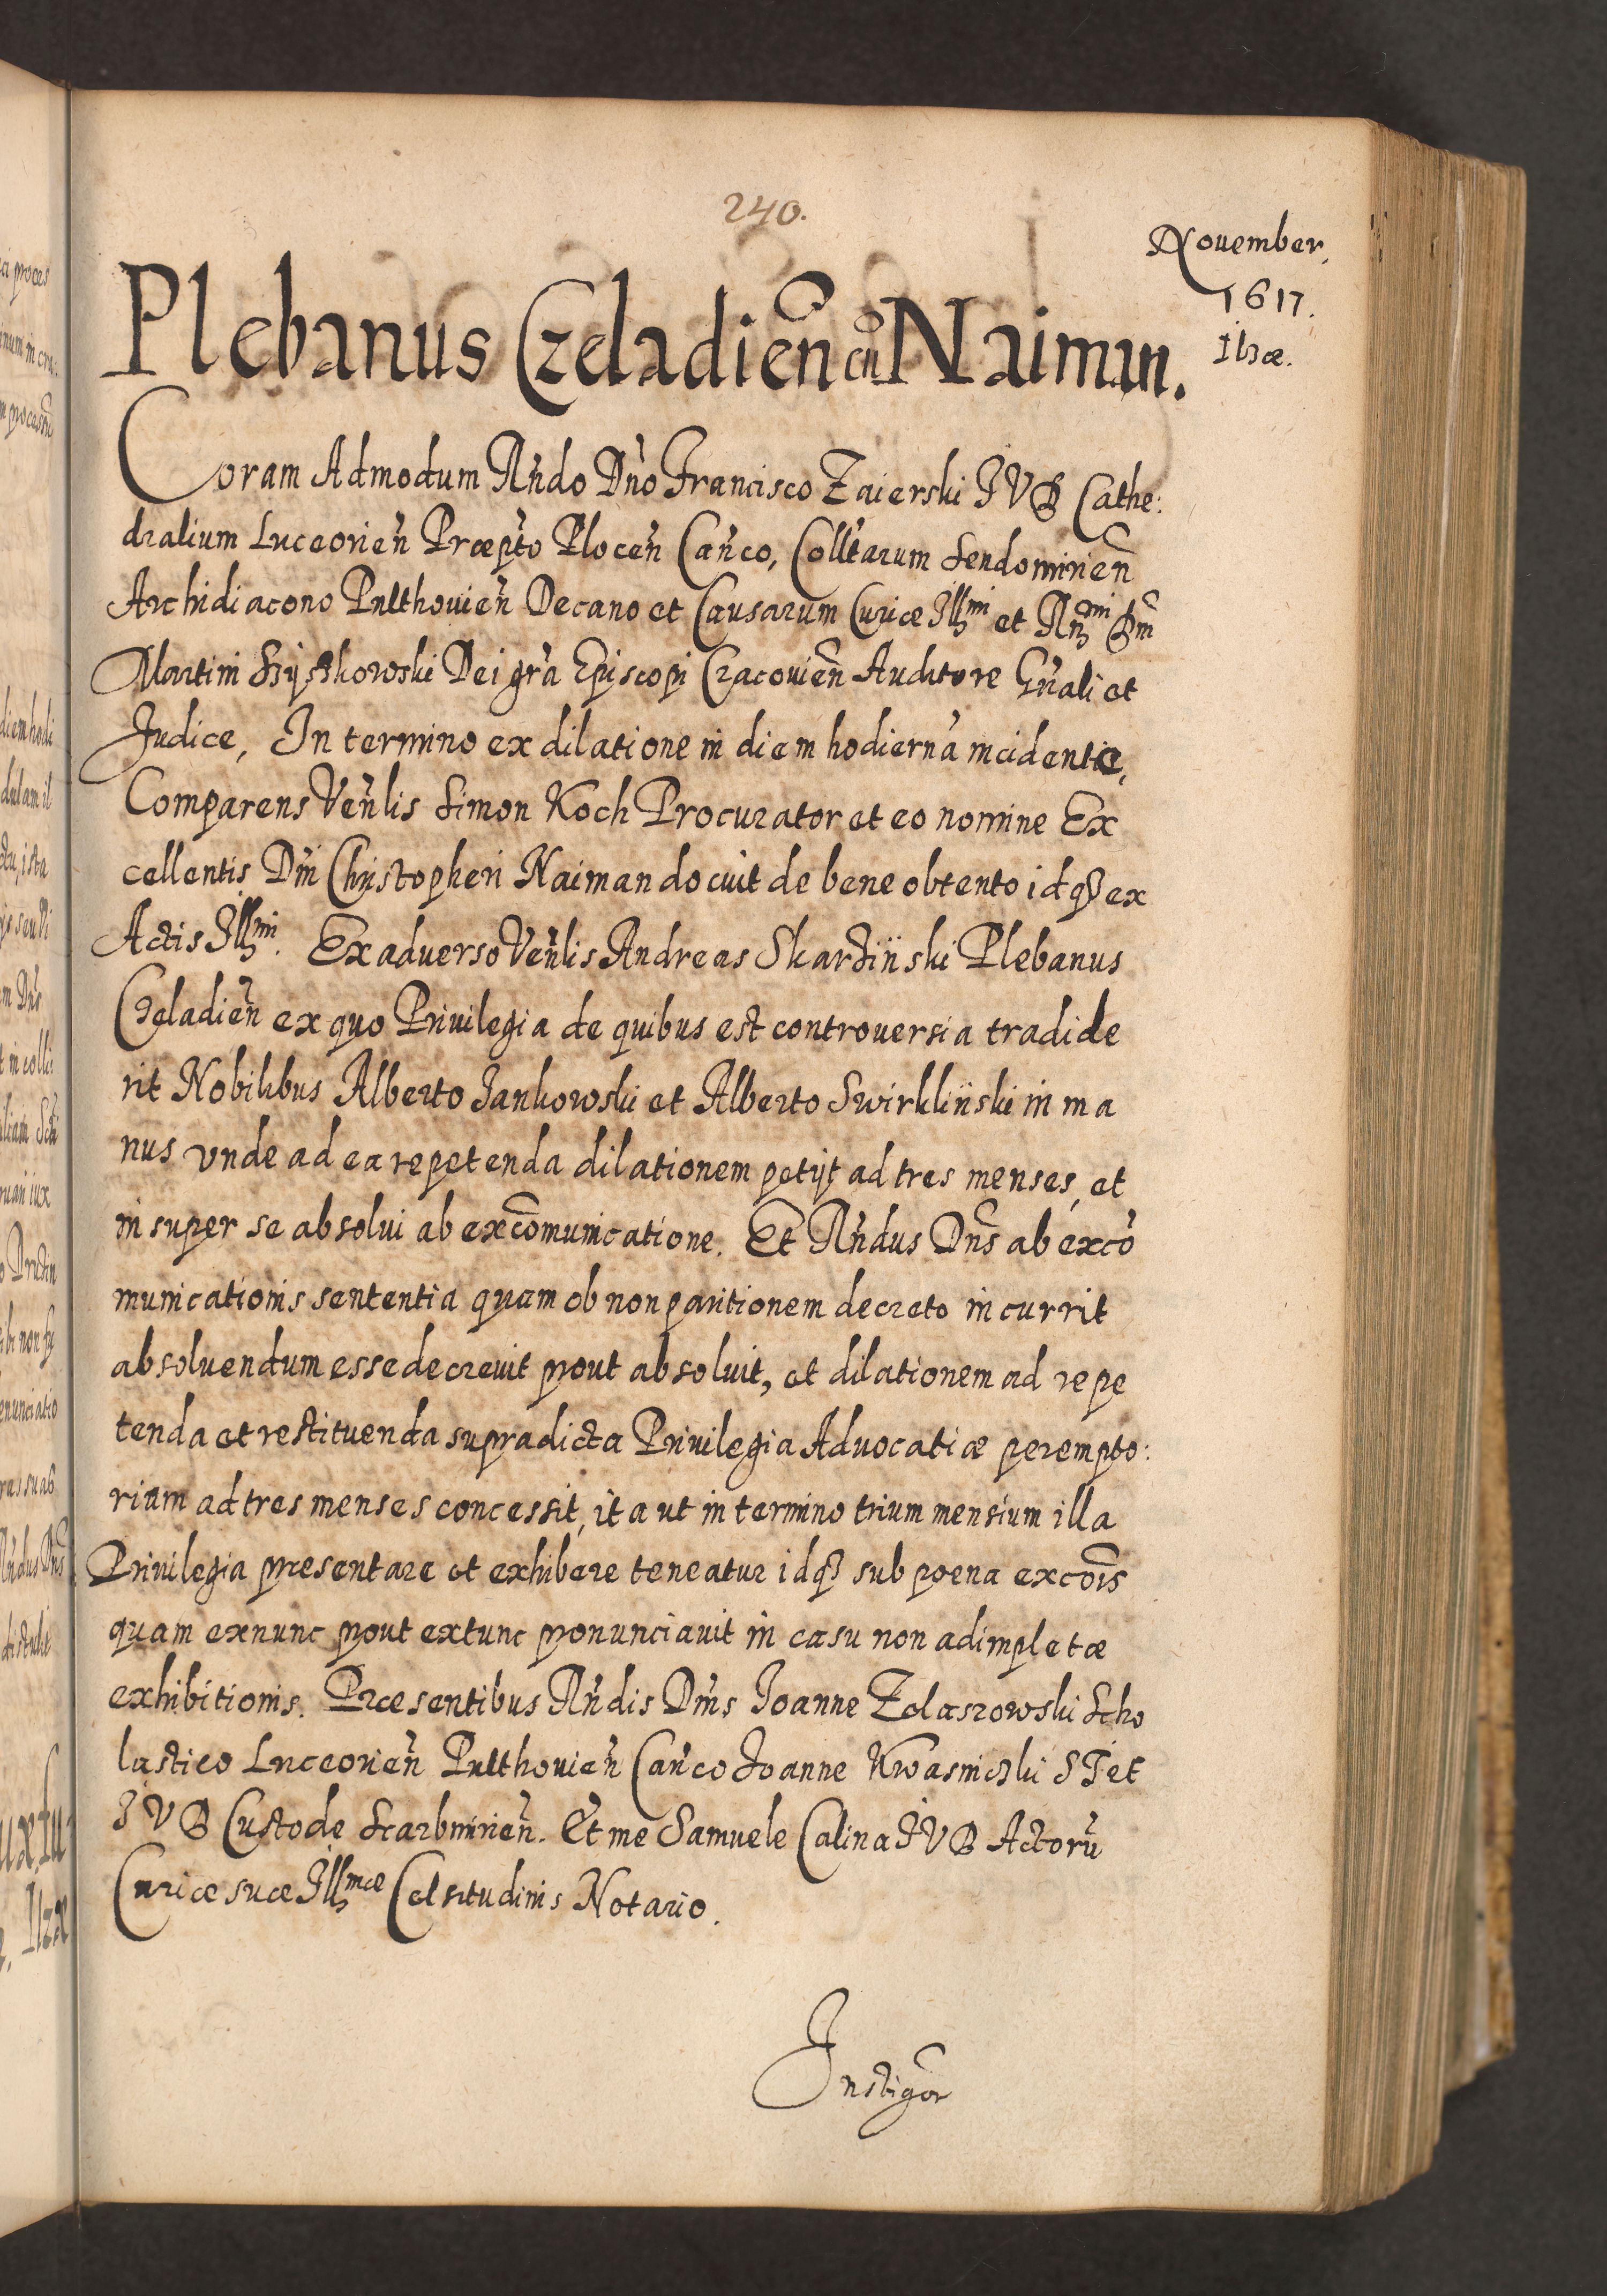 240.
November.
1617.
Ilzæ.
Plebanus Czeladień cũ Naiman.
Coram Admodum Rńdo Dńo Francisco Zaierski I V D Cathe:
dralium Luceorień Præpto Ploceń Cańco, Colltarum Sendomirień
Archidiacono Pulthouień Decano et Causarum Curiæ Illmi et Rmi Dni
Martini Szyszkowski Dei gra Episcopi Cracouień Auditore Gnali et
Judice, In termino ex dilatione in diem hodierną incidentie,
Comparens Venlis Simon Koch Procurator et eo nomine Ex
cellentis Dni Christopheri Naiman docuit de bene obtento idq3 ex
Actis Illmi. Ex aduerso Venlis Andreas Skardiński Plebanus
Czeladień ex quo Priuilegia de quibus est controuersia tradide
rit Nobilibus Alberto Jankowski et Alberto Swirkliński in ma
nus vnde ad ea repetenda dilationem petijt ad tres menses, et
insuper se absolui ab excomunicatione. Et Rńdus Dns ab exco
municationis sententia quam ob non paritionem decreto incurrit
absoluendum esse decreuit prout absoluit, et dilationem ad repe
tenda et restituenda supradicta Priuilegia Aduocatiæ perempto:
riam ad tres menses concessit, ita ut in termino trium mensium illa
Priuilegia presentare et exhibere teneatur idq3 sub poena excois
quam exnunc prout extunc pronunciauit in casu non adimpletæ
exhibitionis. Præsentibus Rńdis Dnis Joanne Zdaszowski Scho
lastico Luceorień Pultthouień Cańco Joanne Kwasniczki S T et
I V D Custode Scarbmirień. Et me Samuele Calina I V D Actorũ
Curiæ suæ Illmæ Celsitudinis Notario.
Instigor